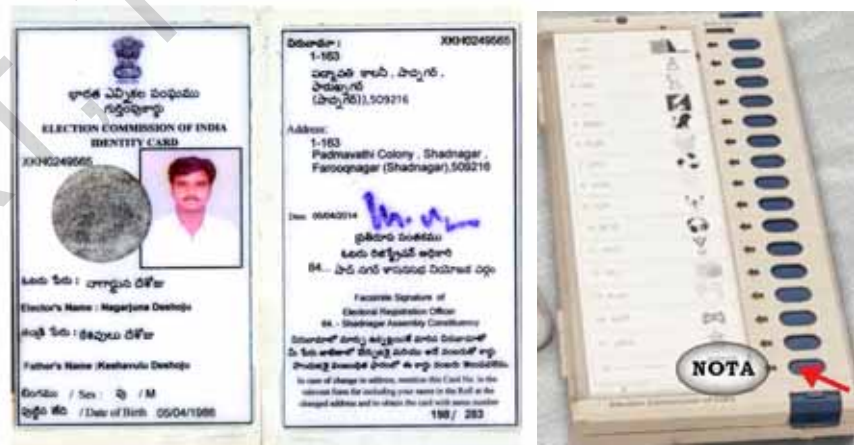 భారత ఎన్నికల సంఘము
గుర్తింపుకార్డు
ELECTION COMMISSION OF INDIA
IDENTITY CARD
XKH0249565
ఓటరు పేరు : నాగార్జున దేశోజు
Elector's Name : Nagarjuna Deshoju
తండ్రి పేరు : కేశవులు దేశోజు
Father's Name : Keshavulu Deshoju
లింగము / Sex : పు / M
పుట్టిన తేది / Date of Birth 05/04/1986
చిరునామా : XKH0249565
1-163
పద్మావతి కాలనీ , షాద్నగర్ ,
ఫారుఖ్నగర్
(షాద్నగర్),509216
Address:
1-163
Padmavathi Colony , Shadnagar ,
Farooqnagar (Shadnagar),509216
Date 05/04/2014
ప్రతిరూప సంతకము
ఓటరు రిజిస్ట్రేషన్ అధికారి
84.. షాద్ నగర్ శాసనసభ నియోజక వర్గం
Facsimile Signature of
Electoral Registration Officer
84. - Shadnagar Assembly Constituency
In case of change in address, mention this Card No. in the
relevant form for including your name in the Roll at the
changed address and to obtain the card with same number
198 / 283
NOTA